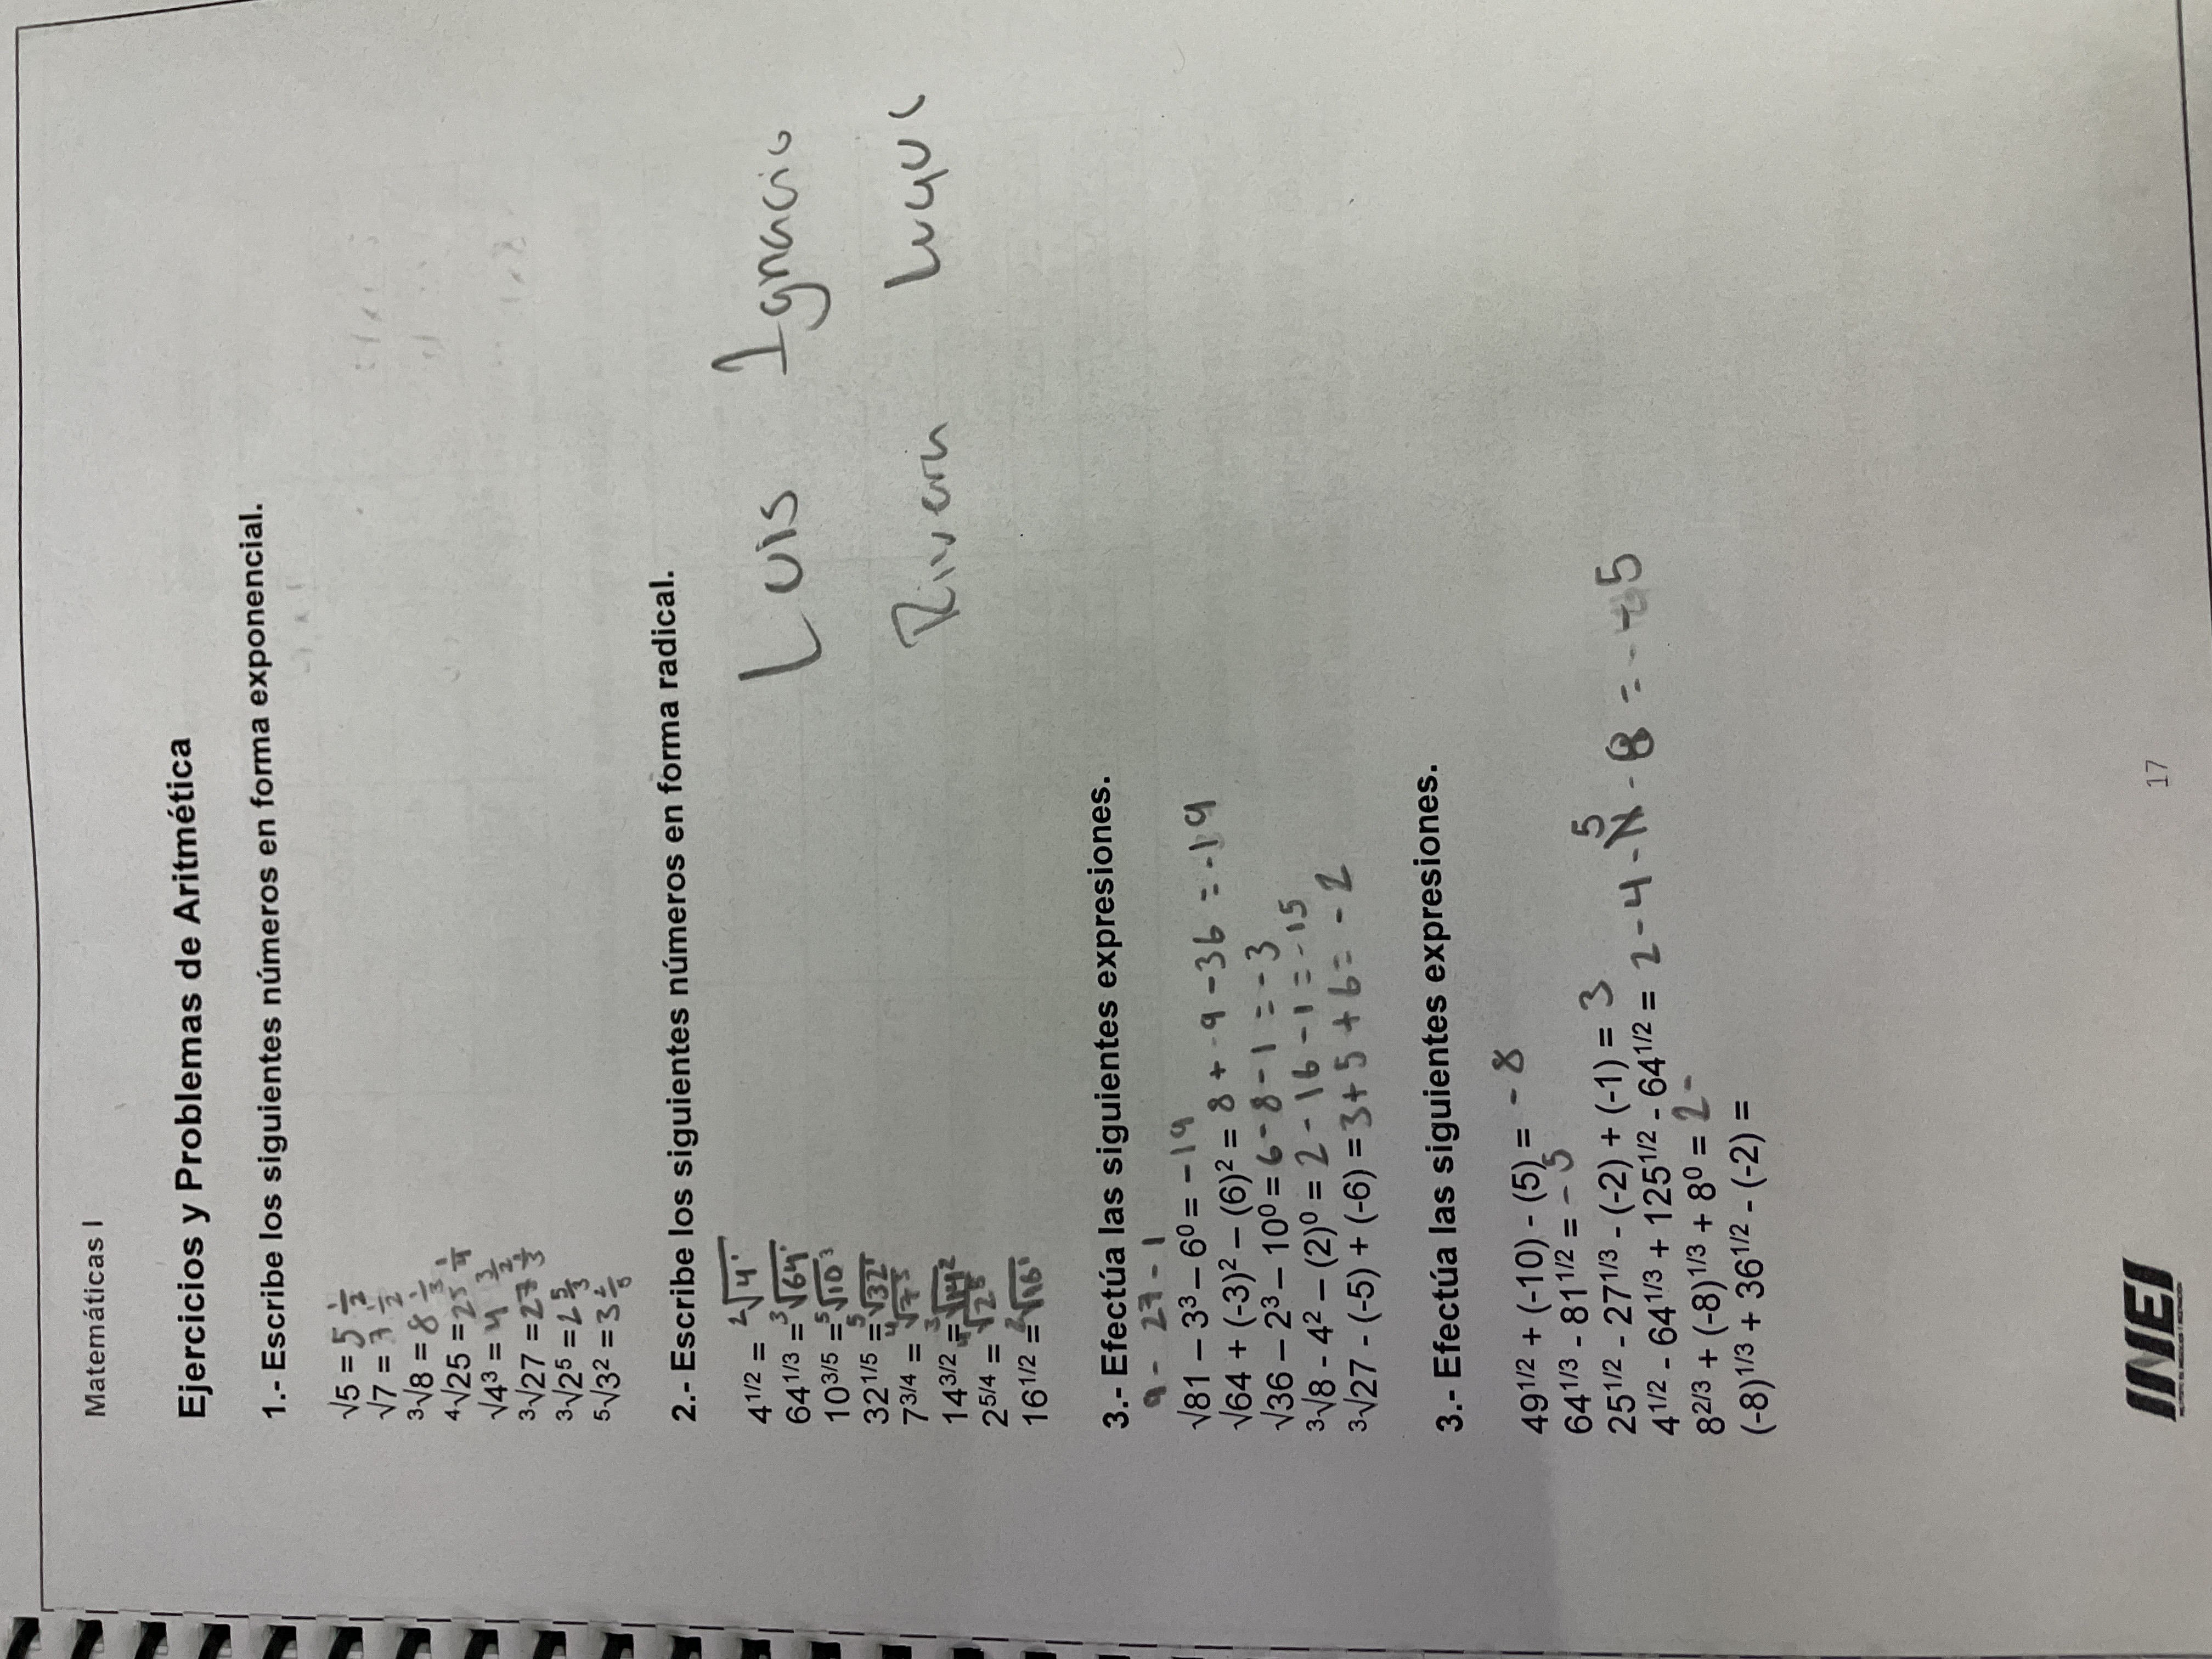 Matemáticas I
Ejercicios y Problemas de Aritmética
1.- Escribe los siguientes números en forma exponencial.
√5 = 5^1/2
√7 = 7^1/2
³√8 = 8^1/3
⁴√25 = 25^1/4
√4³ = 4^3/2
³√27 = 27^1/3
³√2⁵ = 2^5/3
⁵√3² = 3^2/5
2.- Escribe los siguientes números en forma radical.
4^1/2 = ²√4
64^1/3 = ³√64
10^3/5 = ⁵√10³
32^1/5 = ⁵√32
7^3/4 = ⁴√7³
14^3/2 =
2^5/4 =
16^1/2 = ²√16
Luis Ignacio
Rivera
3.- Efectúa las siguientes expresiones.
9 - 27 - 1
√81 – 3³ – 6⁰ = -19
√64 + (-3)² – (6)² = 8 + 9 - 36 = -19
√36 – 2³ – 10⁰ = 6 - 8 - 1 = -3
³√8 - 4² – (2)⁰ = 2 - 16 - 1 = -15
³√27 - (-5) + (-6) = 3 + 5 + 6 = -2
3.- Efectúa las siguientes expresiones.
49^1/2 + (-10) - (5) = -8
64^1/3 - 81^1/2 = -5
25^1/2 - 27^1/3 - (-2) + (-1) = 3
4^1/2 - 64^1/3 + 125^1/2 - 64^1/2 = 2 - 4 - 5 - 8 = -
8^2/3 + (-8)^1/3 + 8⁰ = 2 -
(-8)^1/3 + 36^1/2 - (-2) =
INEI
17